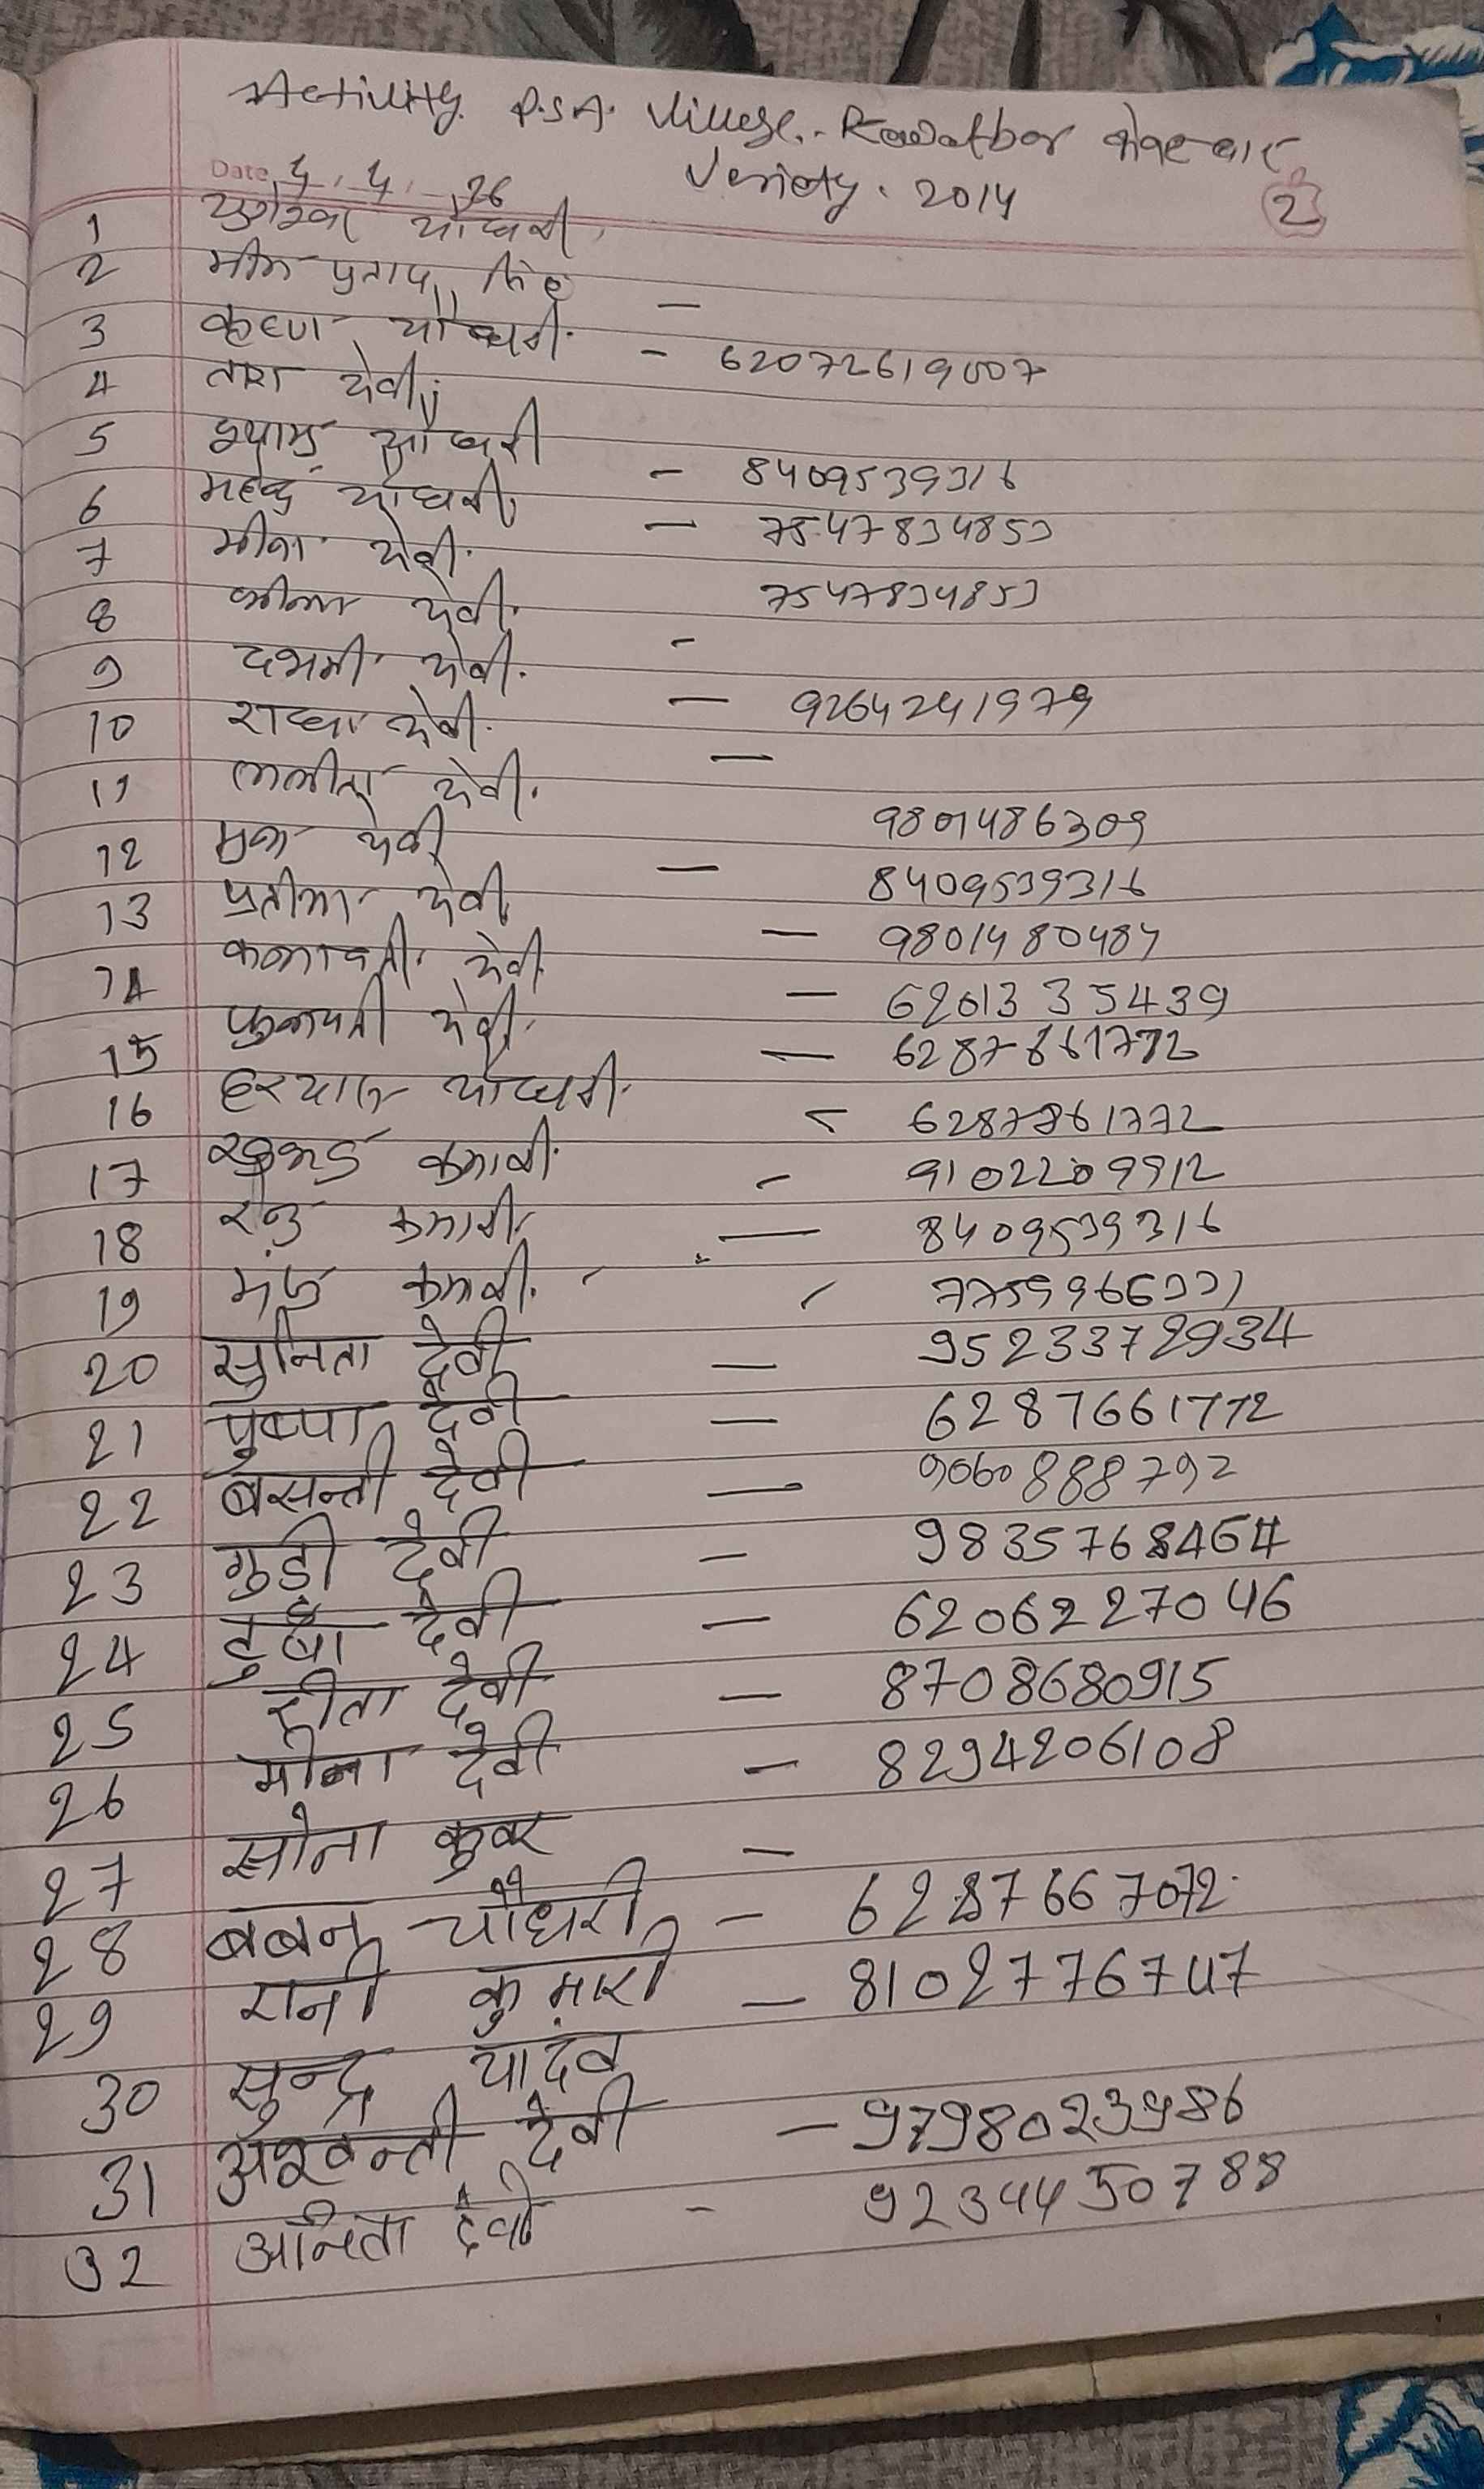 Activity. P.S.A. Village.-Rawatbar
Date 4 / 4 / 26 Veriety. 2014 2
1 चौधरी
2 भीम प्रताप सिंह -
3 कृष्ण चौधरी. - 62072619007
4 तारा देवी
5 श्याम चौधरी - 8409539316
6 महेन्द्र चौधरी - 7547834853
7 मीना देवी. 7547834853
8 देवी. -
9 देवी. - 9264241979
10 राधा देवी. -
11 ललीता देवी.
9801486309
12 देवी - 8409539316
13 प्रतीमा देवी - 9801480484
14 कलावती देवी - 6201335439
15 फुलपती देवी - 6287861772
16 हरदयाल चौधरी. - 6287861772
17 कुमारी. - 9102209912
18 कुमारी - 8409539316
19 कुमारी. -
20 सुनिता देवी - 9523372934
21 पुष्पा देवी - 6287661772
22 बसन्ती देवी - 9060888792
23 गुडी देवी - 9835768464
24 देवी - 6206227046
25 देवी - 8708680915
26 मीना देवी - 8294206108
27 सोना कुवर -
28 बबन चौधरी - 6287667072
29 रानी कुमारी - 8102776747
30 सुन्द्र यादव
31 देवी -
32 अनिता देवी - 9234450788